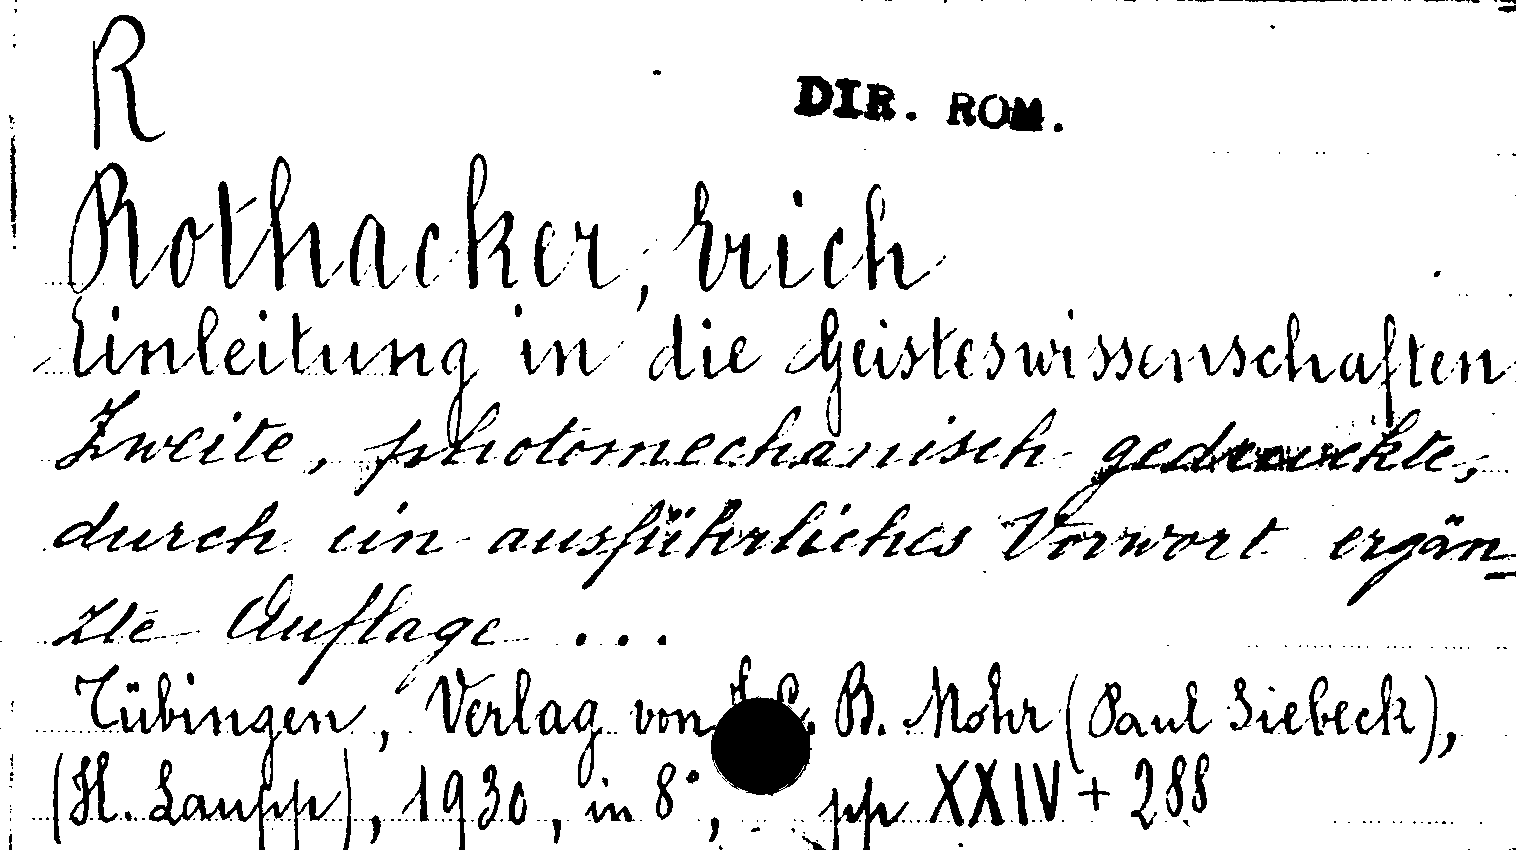 R
DIR. ROM.
Rothacker, Erich
Einleitung in die Geisteswissenschaften
Zweite, photomechanisch gedruckte,
durch ein ausführliches Vorwort ergän-
zte Auflage ...
Tübingen, Verlag von J. C. B. Mohr (Paul Siebeck),
(H. Laupp), 1930, in 8°, pp XXIV + 288